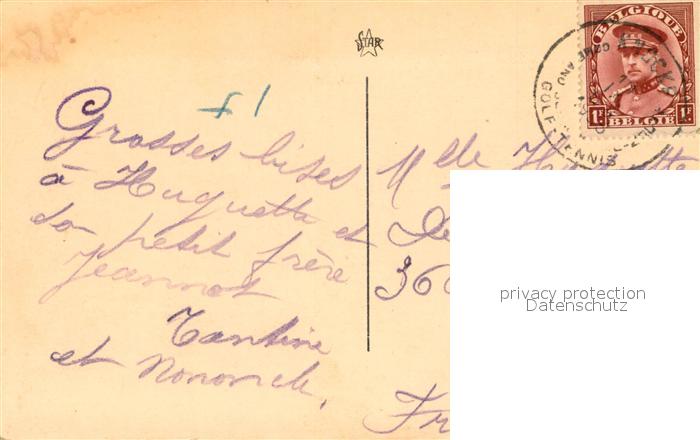 STAR
f 1
Grosses bises
à Huguette et
son petit frère
Jeannot
Tantine
et Nononcle.
Mlle Huguette
De
36
Fr
BELGIQUE
1F BELGIË 1F
GOLF TENNIS
privacy protection
Datenschutz